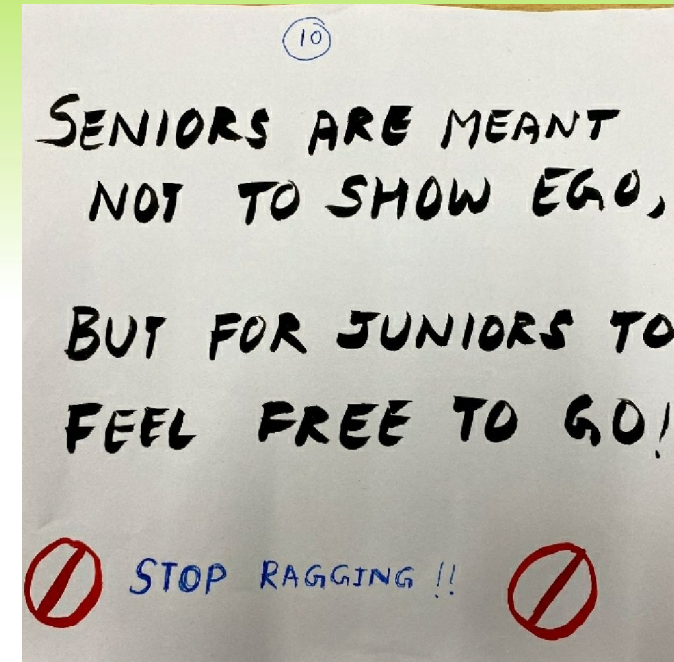 10
SENIORS ARE MEANT
NOT TO SHOW EGO,
BUT FOR JUNIORS TO
FEEL FREE TO GO!
STOP RAGGING !!